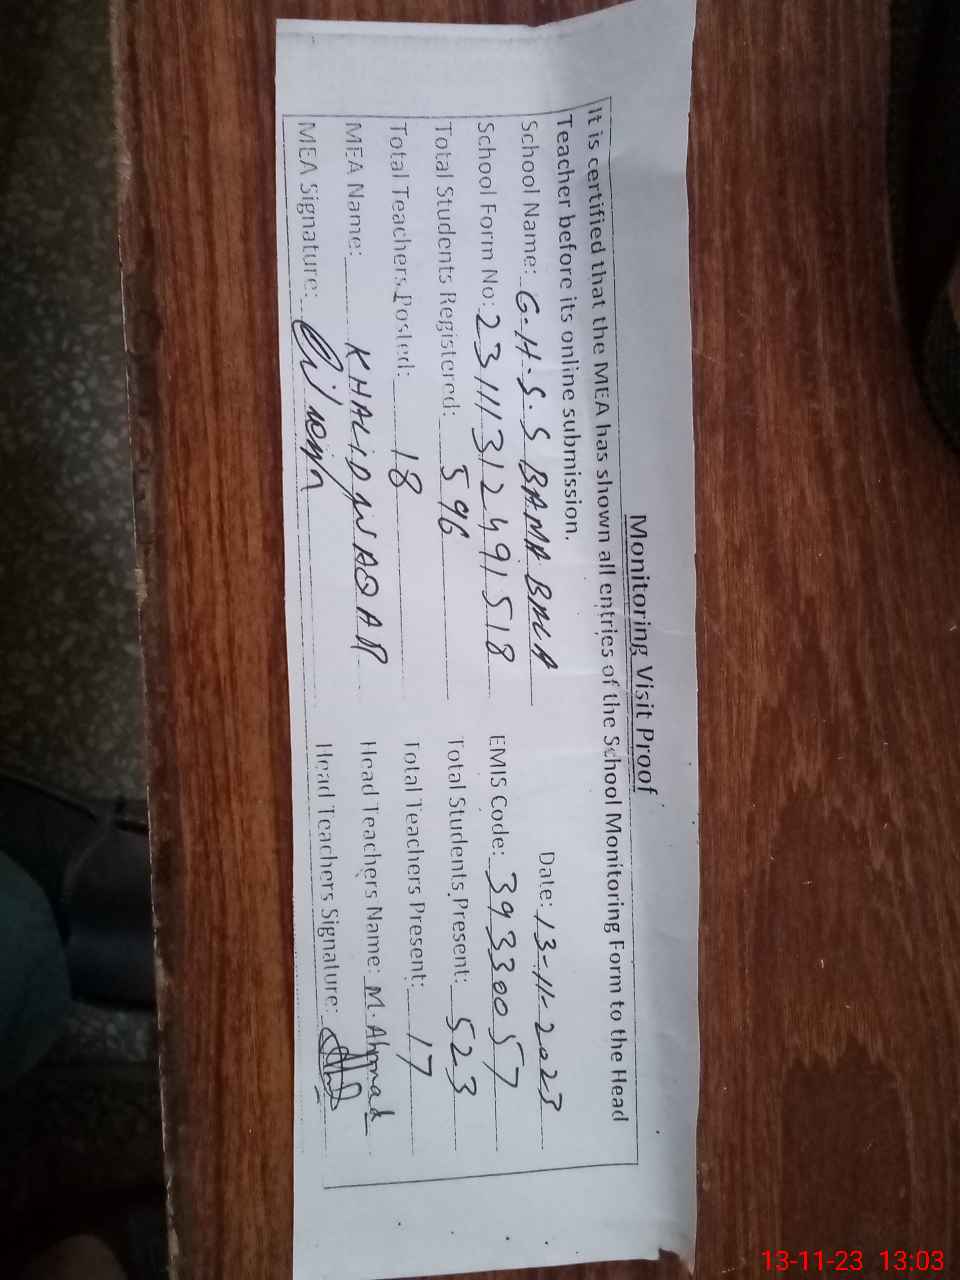 Monitoring Visit Proof
It is certified that the MEA has shown all entries of the School Monitoring Form to the Head
Teacher before its online submission.
Date: 13-11-2023
School Name: G.H.S.S BAMA BALA
School Form No: 23111312491518 EMIS Code: 39330057
Total Students Registered: 596 Total Students Present: 523
Total Teachers Posted: 18 Total Teachers Present: 17
MEA Name: KHALID WAQAR Head Teachers Name: M. Ahmad
MEA Signature: Head Teachers Signature:
13-11-23 13:03